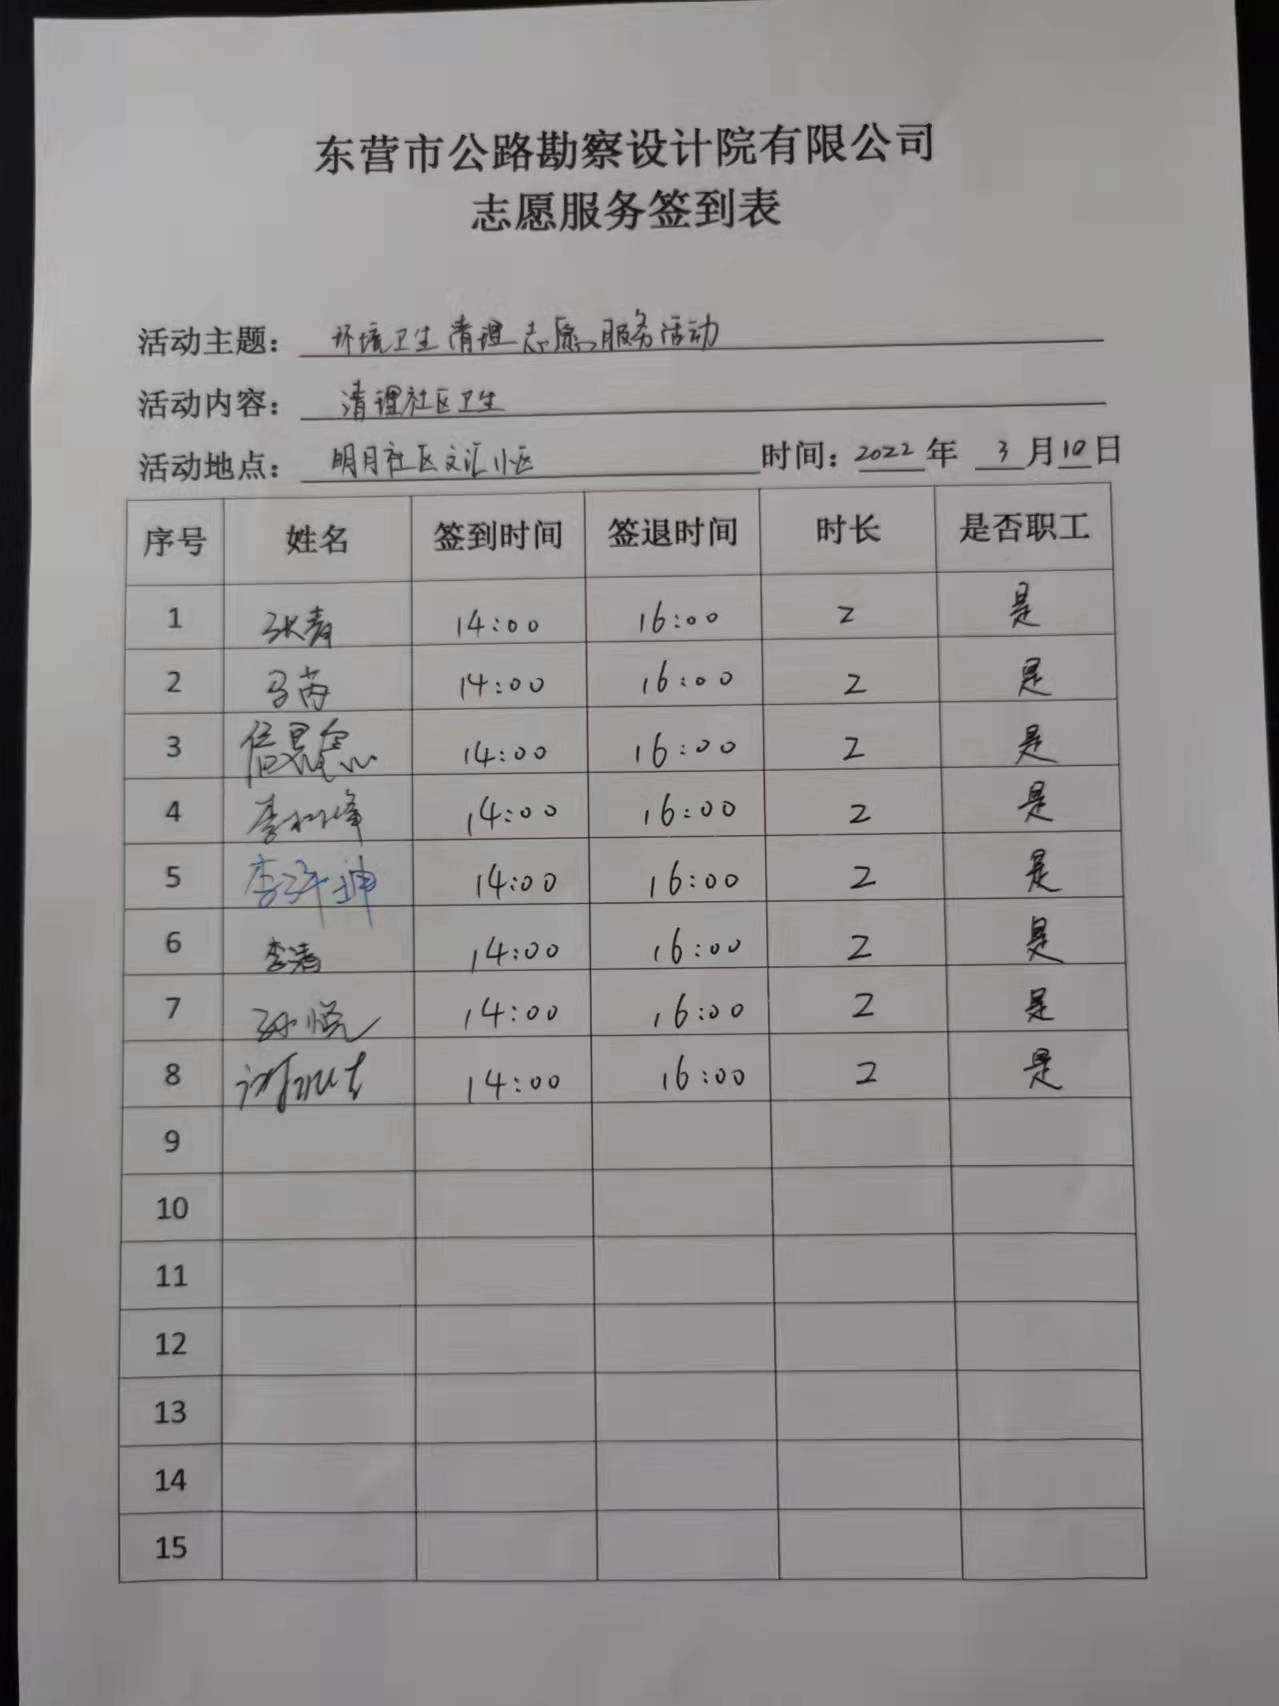 东营市公路勘察设计院有限公司
志愿服务签到表
活动主题： 环境卫生清理志愿服务活动
活动内容： 清理社区卫生
活动地点： 明月社区文汇小区 时间：2022年 3月10日
序号 姓名 签到时间 签退时间 时长 是否职工
1 张青 14:00 16:00 2 是
2 马芮 14:00 16:00 2 是
3 14:00 16:00 2 是
4 14:00 16:00 2 是
5 14:00 16:00 2 是
6 李涛 14:00 16:00 2 是
7 孙悦 14:00 16:00 2 是
8 14:00 16:00 2 是
9
10
11
12
13
14
15